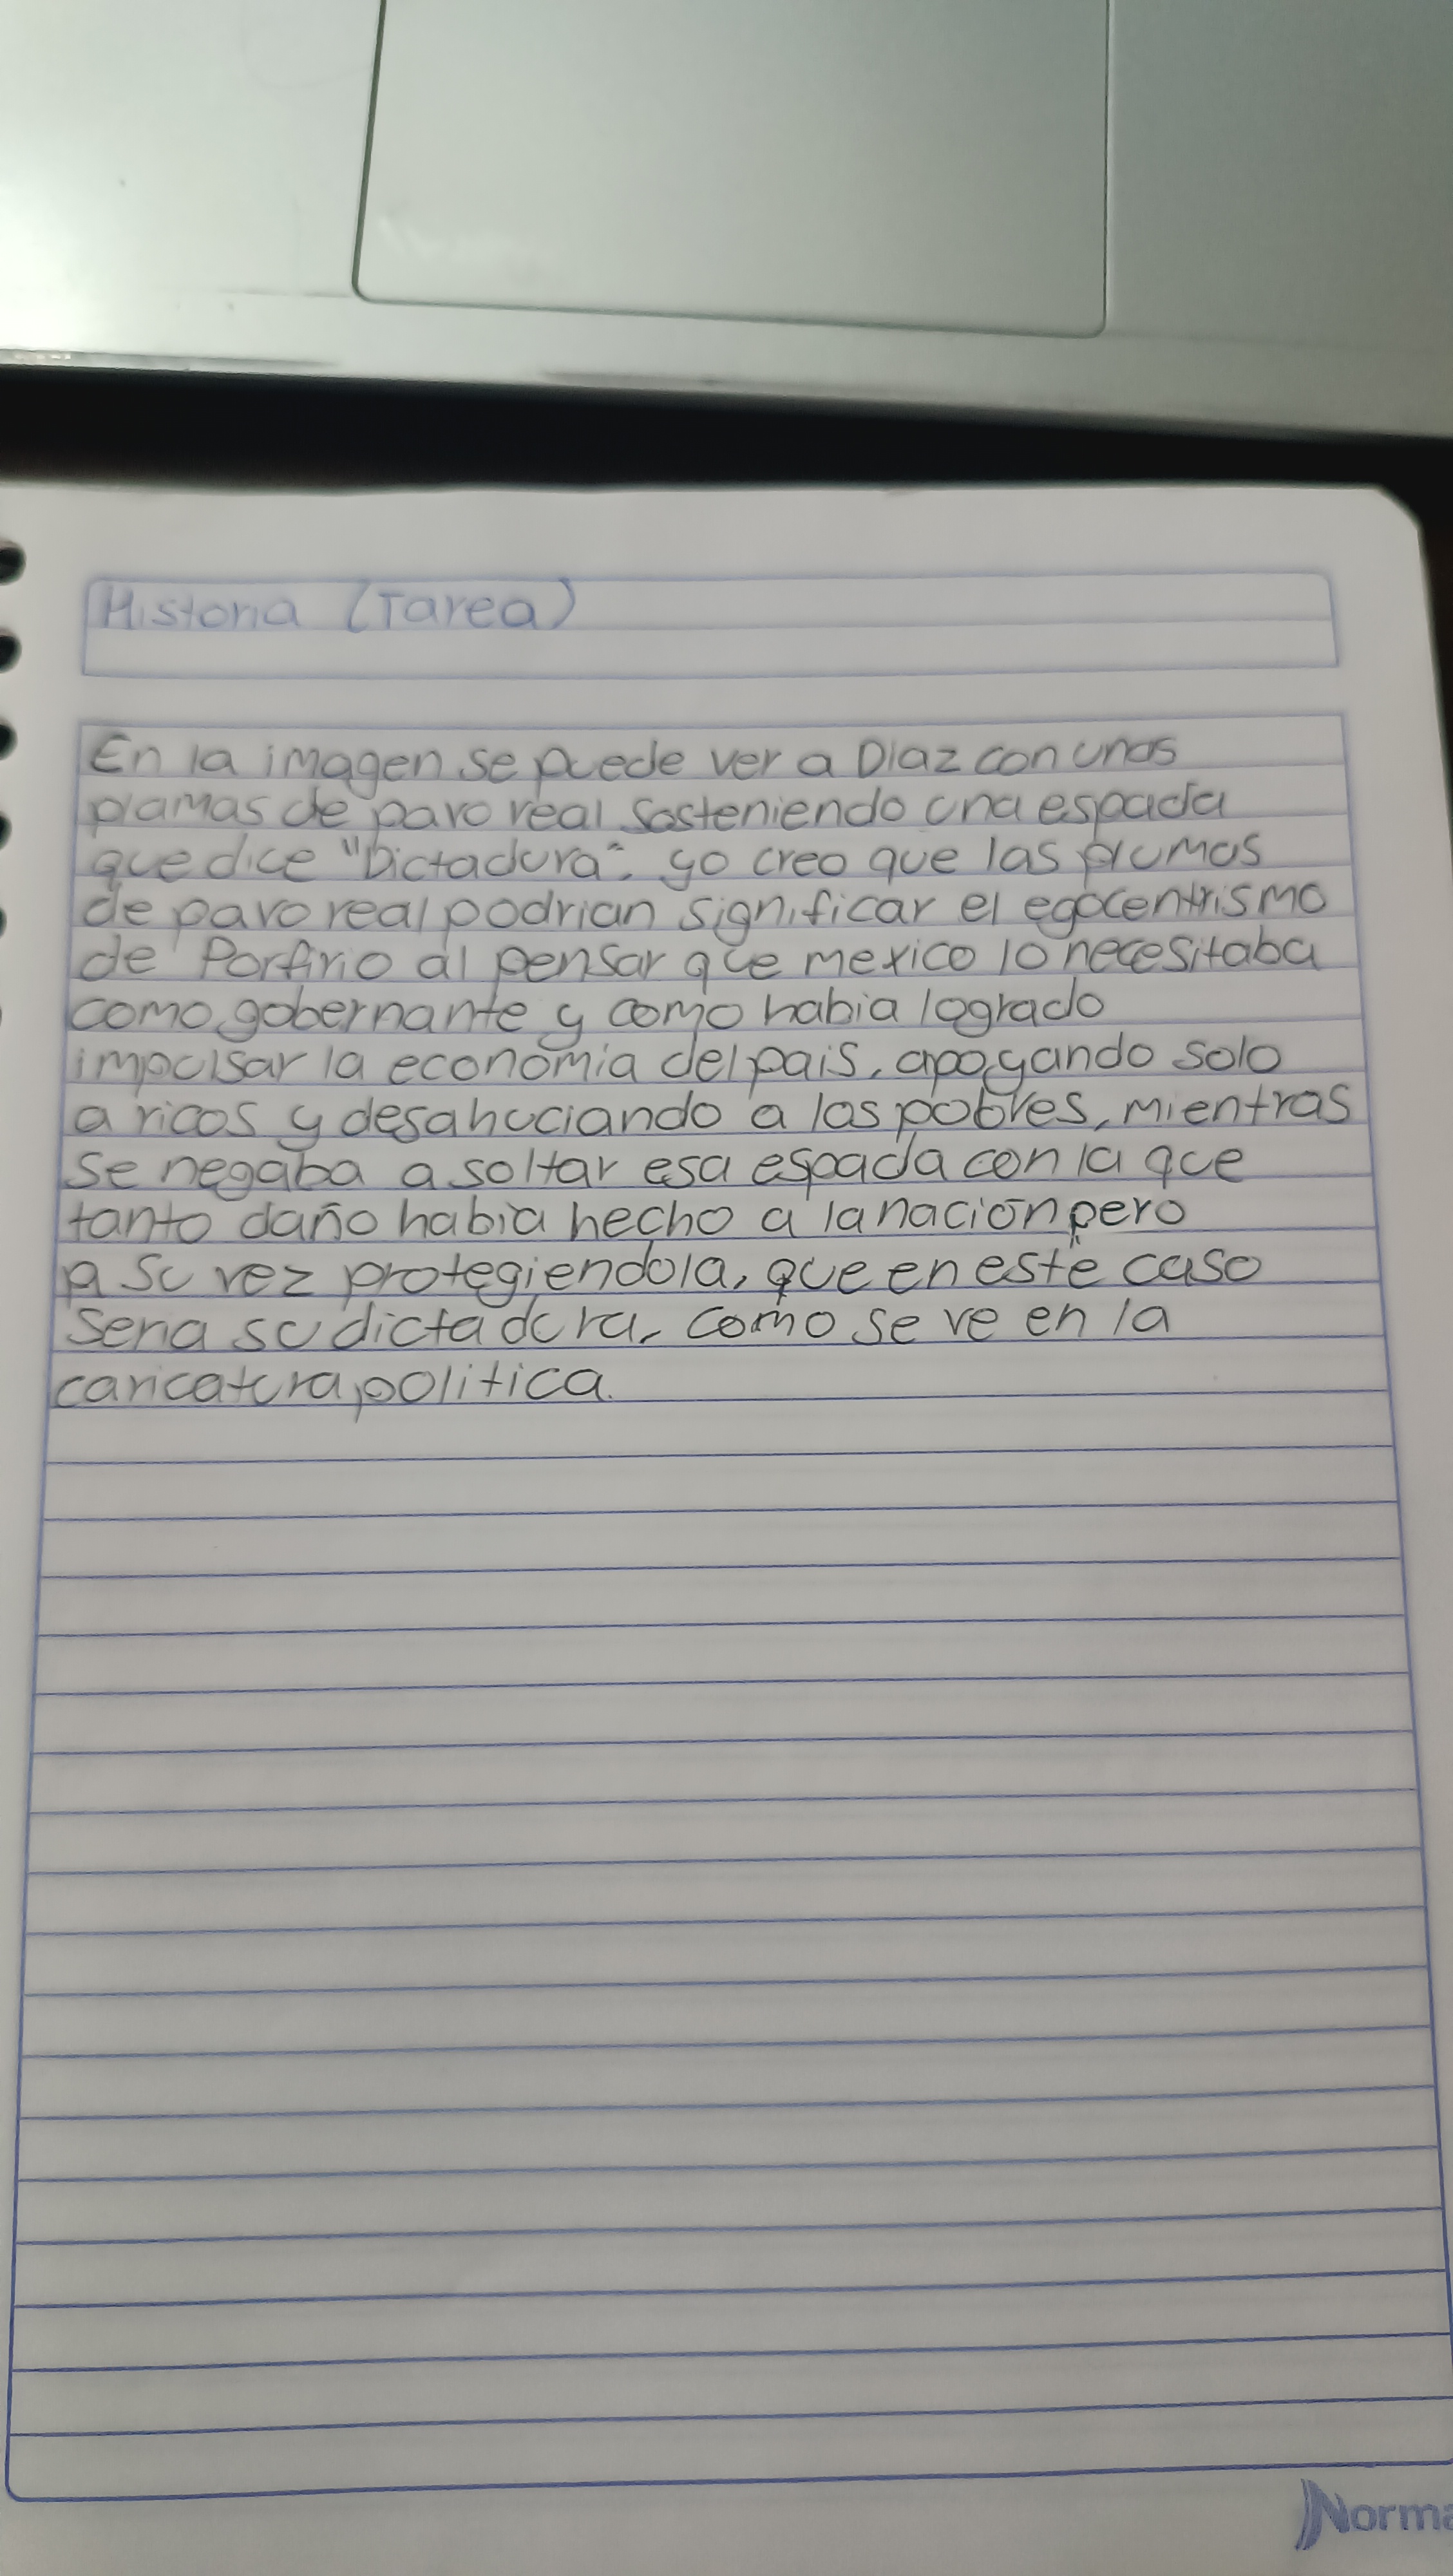 Historia (Tarea)
En la imagen se puede ver a Diaz con unas
plamas de pavo real sosteniendo una espada
que dice "Dictadura", yo creo que las plumas
de pavo real podrian significar el egocentrismo
de Porfirio al pensar que mexico lo necesitaba
como gobernante y como habia logrado
impulsar la economia del pais, apoyando solo
a ricos y desahuciando a los pobres, mientras
se negaba a soltar esa espada con la que
tanto daño habia hecho a la nación pero
a su vez protegiendola, que en este caso
seria su dictadura, como se ve en la
caricatura politica.
Norma